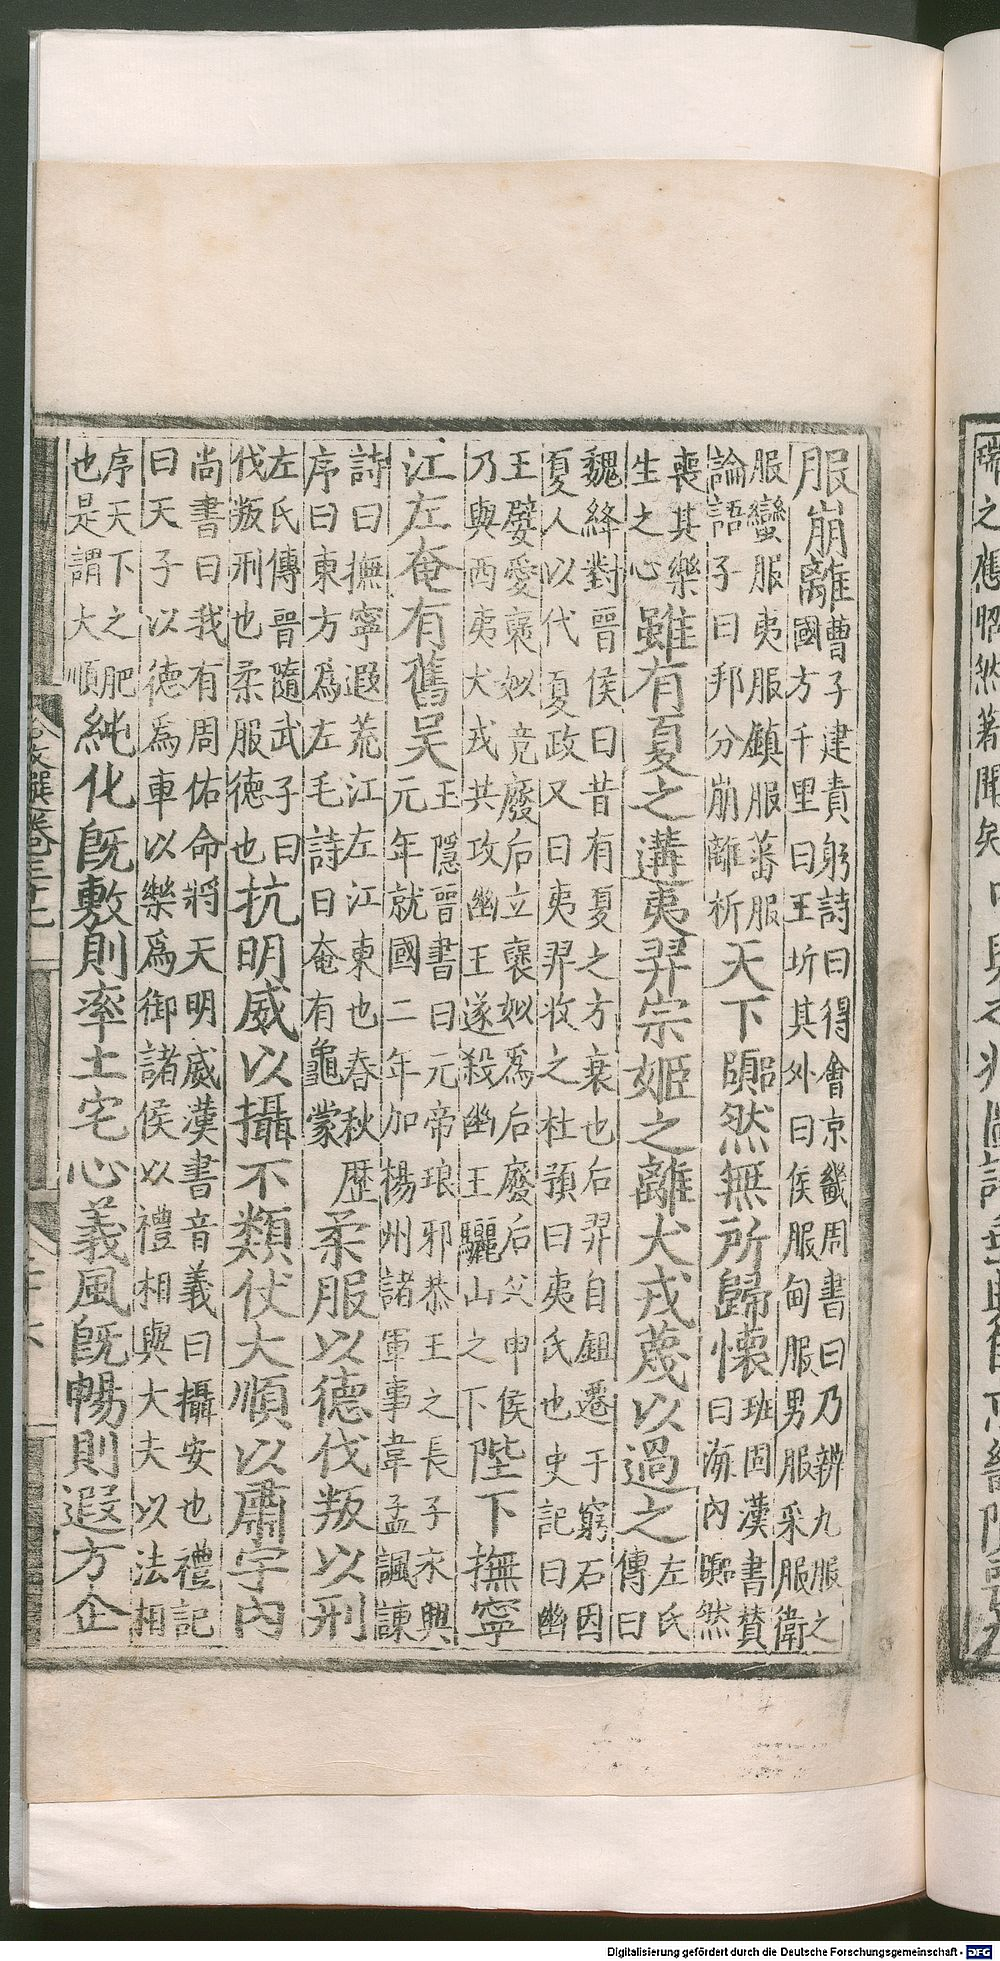 瑞之應昭然著聞矣
服崩離曹子建責躬詩曰得會京畿周書曰乃辨九服之
國方千里曰王圻其外曰侯服甸服男服采服衛
服蠻服夷服鎮服蕃服
論語子曰邦分崩離析
天下嚻然無所歸懷班固漢書贊
曰海內嚻然
喪其樂
生之心
雖有夏之遘夷羿宗姬之離犬戎蔑以過之左氏
傳曰
魏絳對晉侯曰昔有夏之方衰也后羿自鉏遷于窮石因
夏人以代夏政又曰夷羿收之杜預曰夷氏也史記曰幽
王嬖愛褒姒竟廢后立褒姒爲后廢后父申侯
乃與西夷犬戎共攻幽王遂殺幽王驪山之下
陛下撫寧
江左奄有舊吳王隱晉書曰元帝琅邪恭王之長子永興
元年就國二年加楊州諸軍事韋孟諷諫
詩曰撫寧遐荒江左江東也春秋歷
序曰東方為左毛詩曰奄有龜蒙
柔服以德伐叛以刑
左氏傳晉隨武子曰
伐叛刑也柔服德也
抗明威以攝不類仗大順以肅宇內
尚書曰我有周佑命將天明威漢書音義曰攝安也禮記
曰天子以德爲車以樂爲御諸侯以禮相與大夫以法相
序天下之肥
也是謂大順
純化旣敷則率土宅心義風旣暢則遐方企
Digitalisierung gefördert durch die Deutsche Forschungsgemeinschaft - DFG